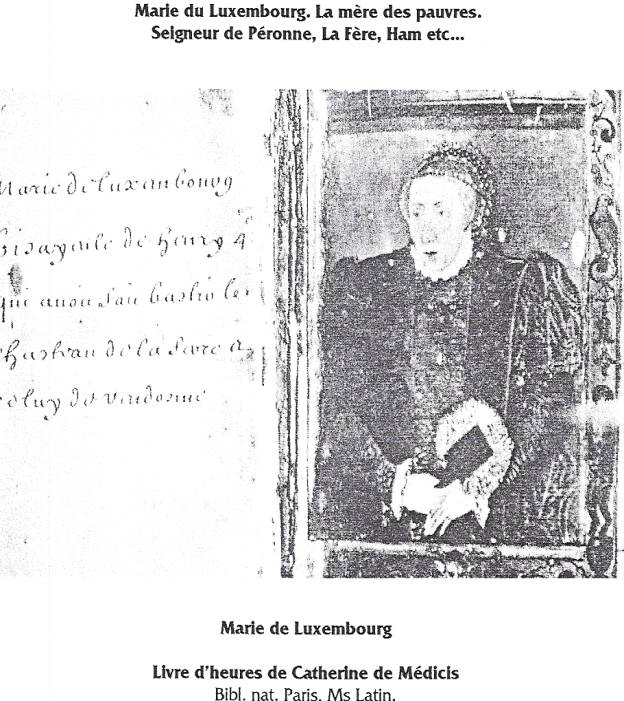 Marie du Luxembourg. La mère des pauvres.
Seigneur de Péronne, La Fère, Ham etc...
Marie de luxambourg
bisayeule de henry 4
qui avoit fait bastir les
de la fere
celuy de vandosme
Marie de Luxembourg
Livre d'heures de Catherine de Médicis
Bibl. nat. Paris. Ms Latin.